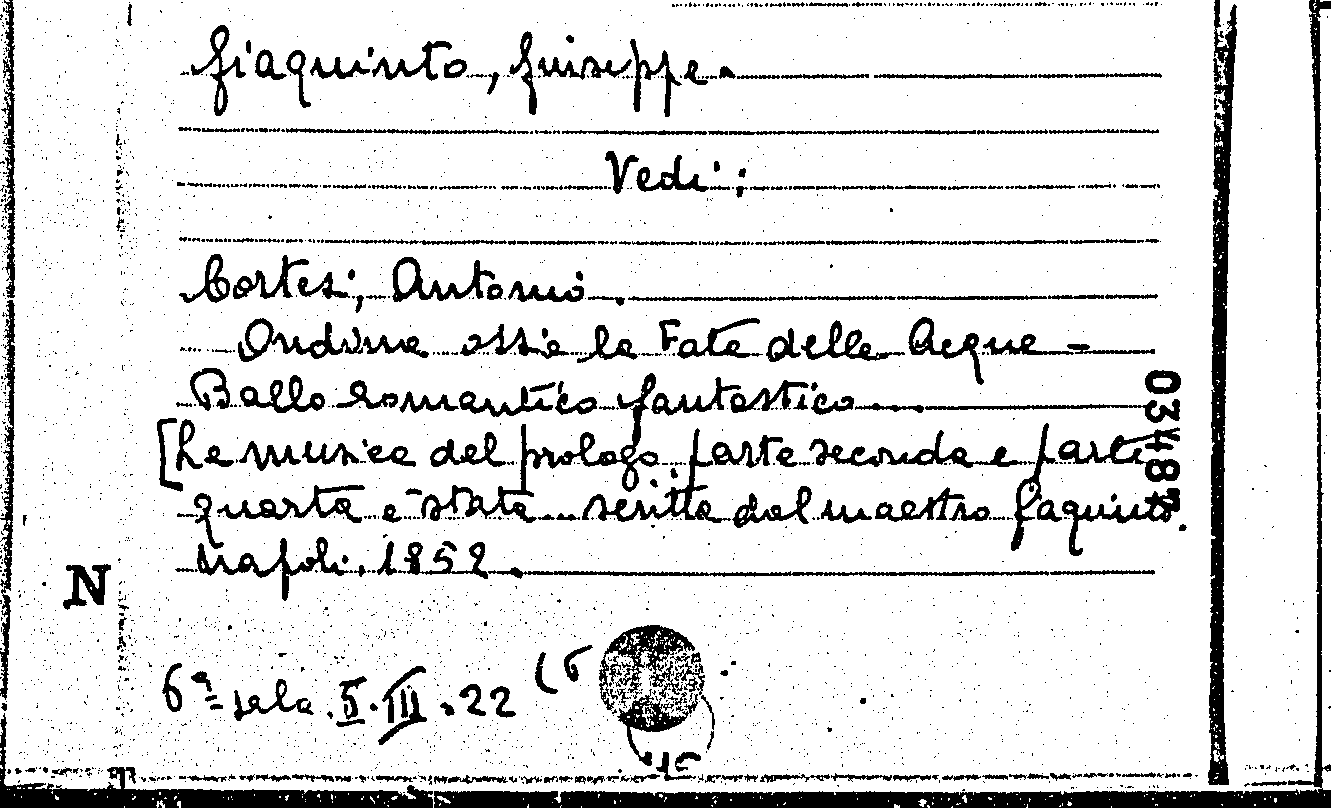 Giaquinto, Giuseppe.
Vedi:
Cortesi, Antonio.
Ondina ossia la Fata delle Acque -
Ballo romantico fantastico ...
[La musica del prologo, parte seconda e parte
quarta è stata ... scritta dal maestro Giaquinto.
Napoli. 1852.
N
6ª sala. II. III. 22 (6
03487